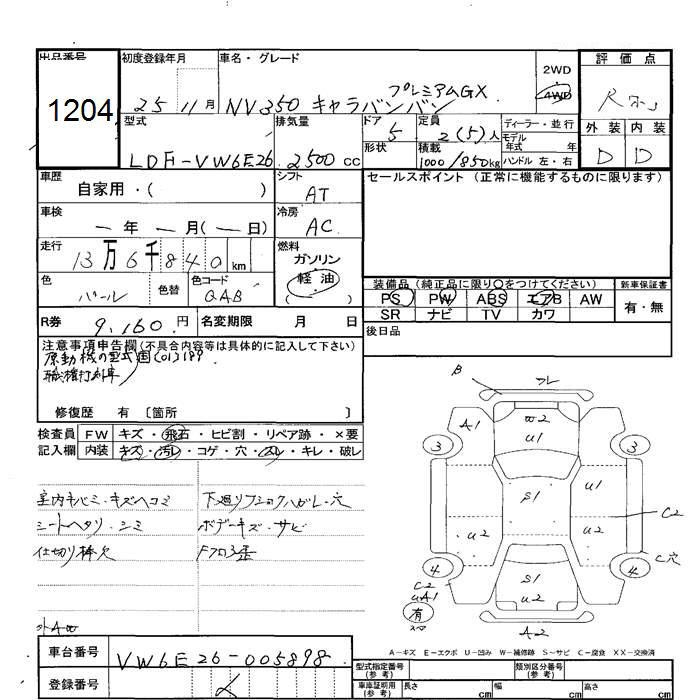 出品番号 初度登録年月 車名・グレード 2WD 4WD 評価点
1204 25 11月 NV350 キャラバンバン プレミアムGX
型式 排気量 ドア 定員 ディーラー・並行 外装 内装
LDF-VW6E26 2500cc 5 2(5)人 モデル年式 年 D D
形状 積載 1000/850kg ハンドル 左・右
車歴 シフト セールスポイント (正常に機能するものに限ります)
自家用・( ) AT
車検 冷房
ー年ー月(ー日) AC
走行 燃料
13万6千840km ガソリン
色 色替 色コード 軽油
パール QAB ( )
装備品 (純正品に限り○をつけてください) 新車保証書
PS PW ABS エアB AW 有・無
SR ナビ TV カワ
R券 9,160円 名変期限 月 日 後日品
注意事項申告欄(不具合内容等は具体的に記入して下さい)
原動機の型式
職権打刻車
修復歴 有 〔箇所 〕
検査員 FW キズ・飛石・ヒビ割・リペア跡・×要
記入欄 内装 キズ・汚レ・コゲ・穴・スレ・キレ・破レ
室内キバミ・キズヘコミ 下廻リフショクハガレ・穴
シートヘタリ・シミ ボデーキズ・サビ
仕切り棒欠 Fフロ歪
B フレ
A1 W2 U1
3 3
S1 U1
U2 U2 C2
4 S1 U2 4 C穴
C2
UA1
有
スペ
A2
外A
A-キズ E-エクボ U-凹み W-補修跡 S-サビ C-腐食 XX-交換済
車台番号 VW6E26-005898
登録番号
型式指定番号(参考) 類別区分番号(参考)
車庫証明用(参考) 長さ cm 幅 cm 高さ cm